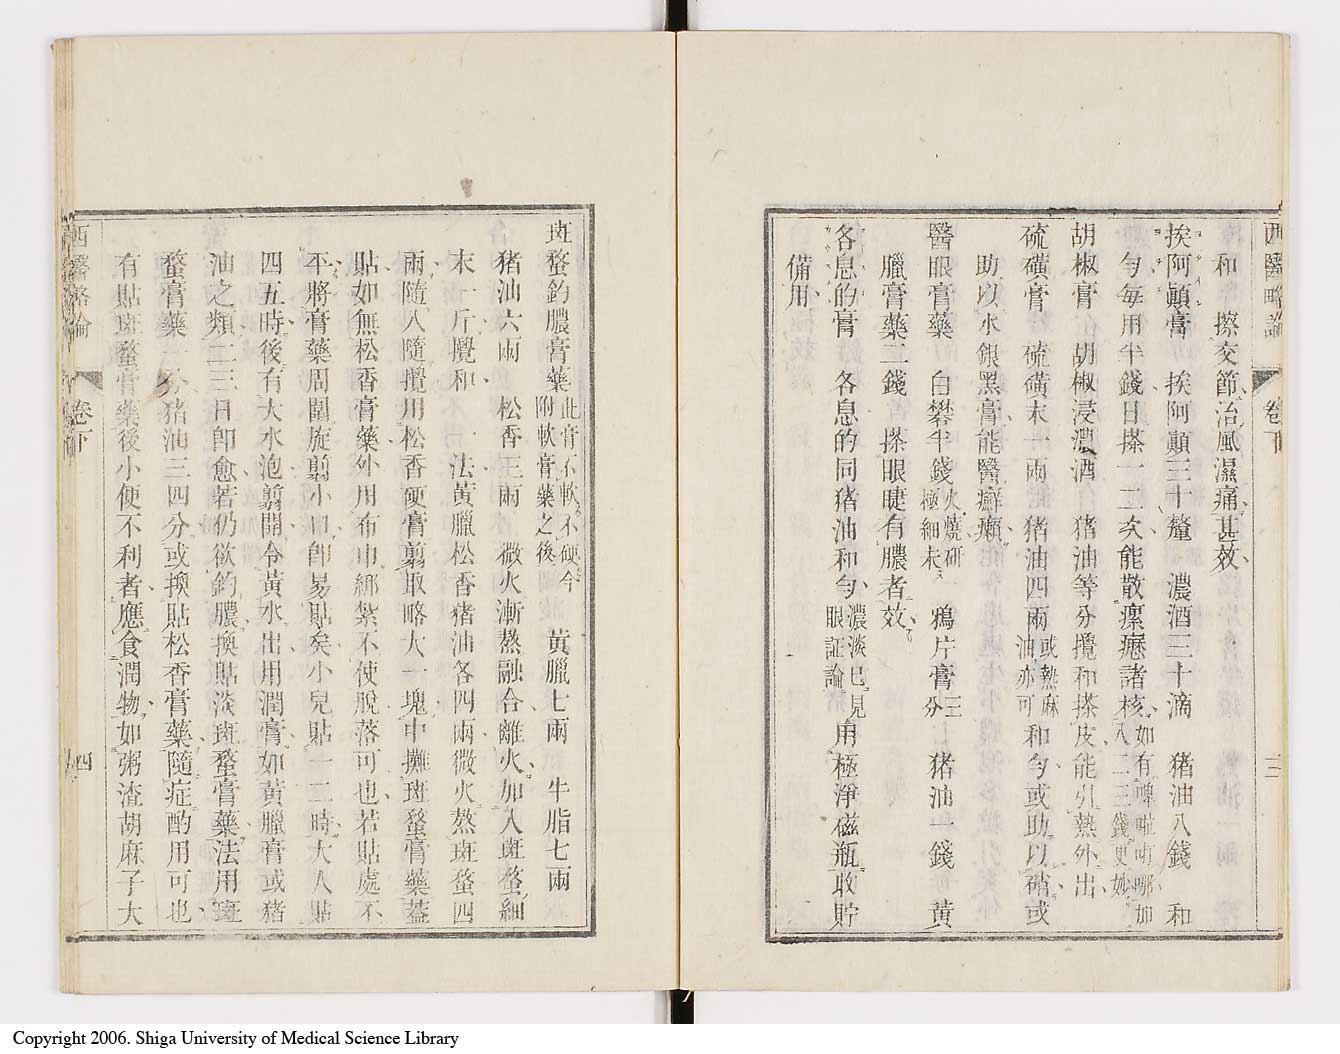 西醫略論 卷下 三
和 擦交節治風濕痛甚效
挨阿顚膏 挨阿顚三十釐 濃酒三十滴 猪油八錢 和
勻每用半錢日搽一二次能散瘰癧諸核如有嗶啦哨哪加入二三錢更妙
胡椒膏 胡椒浸濃酒 猪油等分攪和搽皮能引熱外出
硫磺膏 硫磺末一兩 猪油四兩或熱麻油亦可和勻或助以硝或
助以水銀黑膏能醫癬癩
醫眼膏藥 白礬半錢火燒研極細末 鴉片膏三分 猪油一錢 黃
臘膏藥二錢 搽眼睫有膿者效
各息的膏 各息的同猪油和勻濃淡已見眼証論用極淨磁瓶收貯
備用
斑蝥釣膿膏藥此膏不軟不硬今附軟膏藥之後 黃臘七兩 牛脂七兩
猪油六兩 松香三兩 微火漸蒸融合離火加入斑蝥細
末一斤攪和 一法黃臘松香猪油各四兩微火熬斑蝥四
兩隨入隨攪用松香硬膏剪取略大一塊中攤斑蝥膏藥蓋
貼如無松香膏藥外用布巾綁紮不使脫落可也若貼處不
平將膏藥周圍旋剪小口卽易貼矣小兒貼一二時大人貼
四五時後有大水泡剪開令黃水出用潤膏如黃臘膏或猪
油之類二三日卽愈若仍欲釣膿換貼淡斑蝥膏藥法用斑
蝥膏藥一分猪油三四分或換貼松香膏藥隨症酌用可也
有貼斑蝥膏藥後小便不利者應食潤物如粥渣胡麻子大
西醫略論 卷下 四
Copyright 2006. Shiga University of Medical Science Library